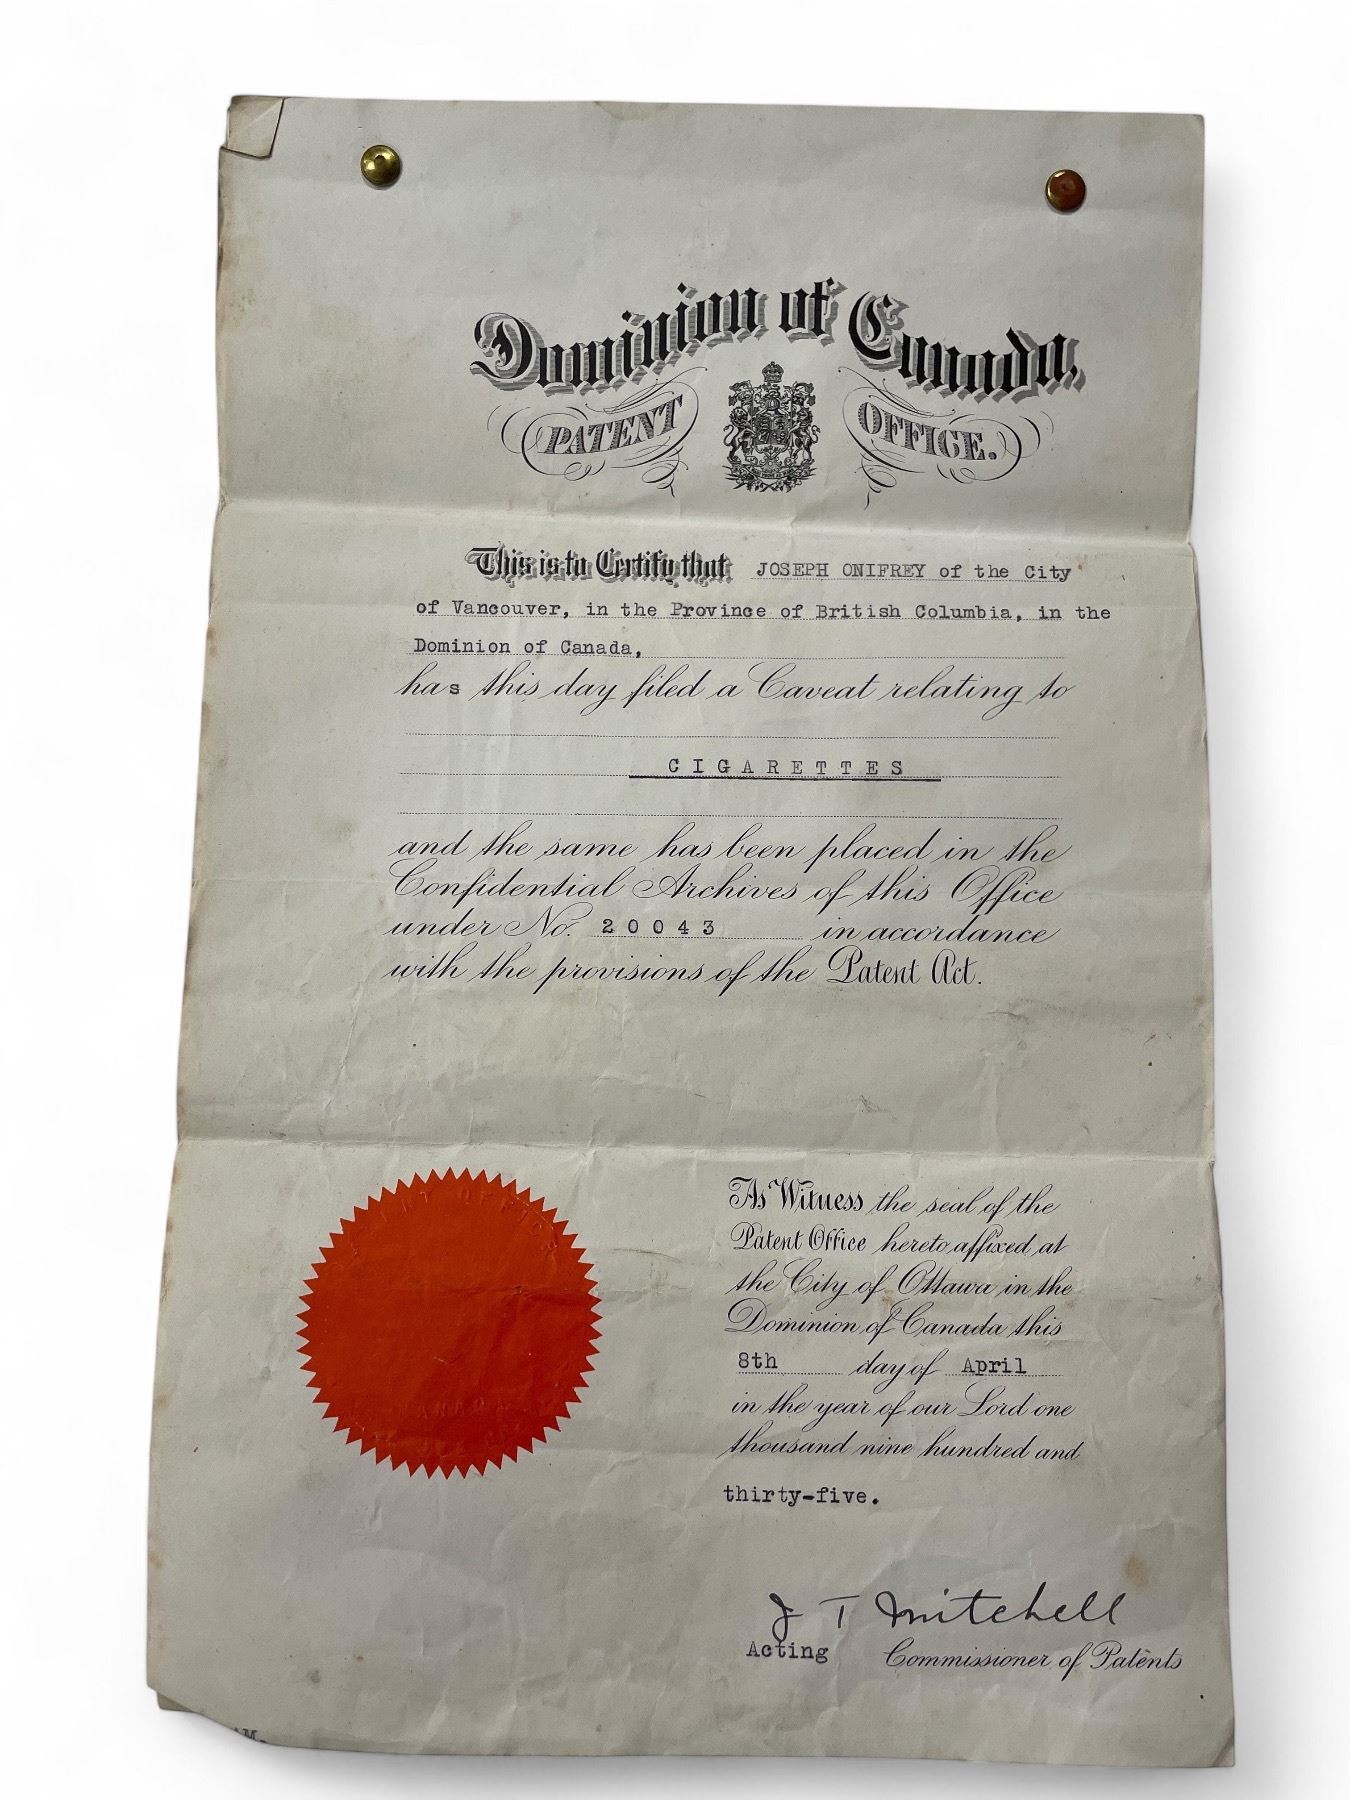 Dominion of Canada,
PATENT OFFICE.
This is to Certify that JOSEPH ONIFREY of the City
of Vancouver, in the Province of British Columbia, in the
Dominion of Canada,
has this day filed a Caveat relating to
CIGARETTES
and the same has been placed in the
Confidential Archives of this Office
under No. 20043 in accordance
with the provisions of the Patent Act.
As Witness the seal of the
Patent Office hereto affixed at
the City of Ottawa in the
Dominion of Canada this
8th day of April
in the year of our Lord one
thousand nine hundred and
thirty-five.
J T Mitchell
Acting Commissioner of Patents